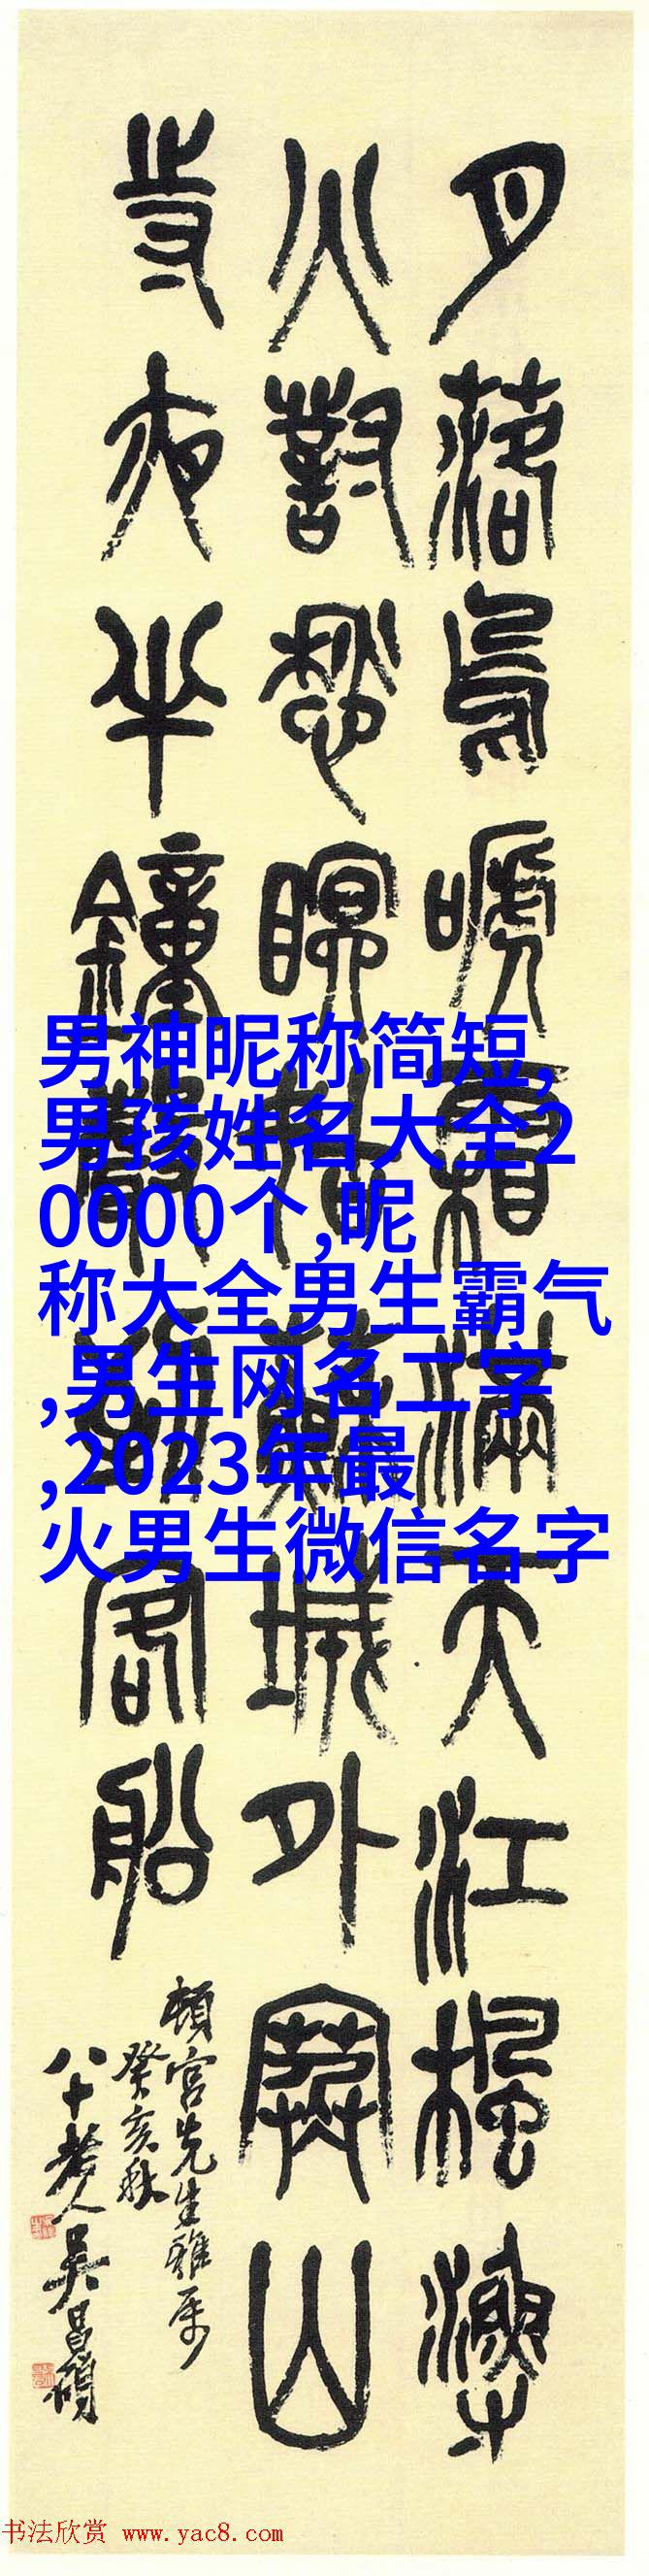 月落烏嗁霜滿天江楓漁
火對愁瞑姑蘇城外寒山
寺夜半鐘聲到客船
頓宮先生雅屬
癸亥秋
八十老人吳昌碩
男神昵称简短,
男孩姓名大全2
0000个,昵
称大全男生霸气
,男生网名二字
,2023年最
火男生微信名字
书法欣赏 www.yac8.com